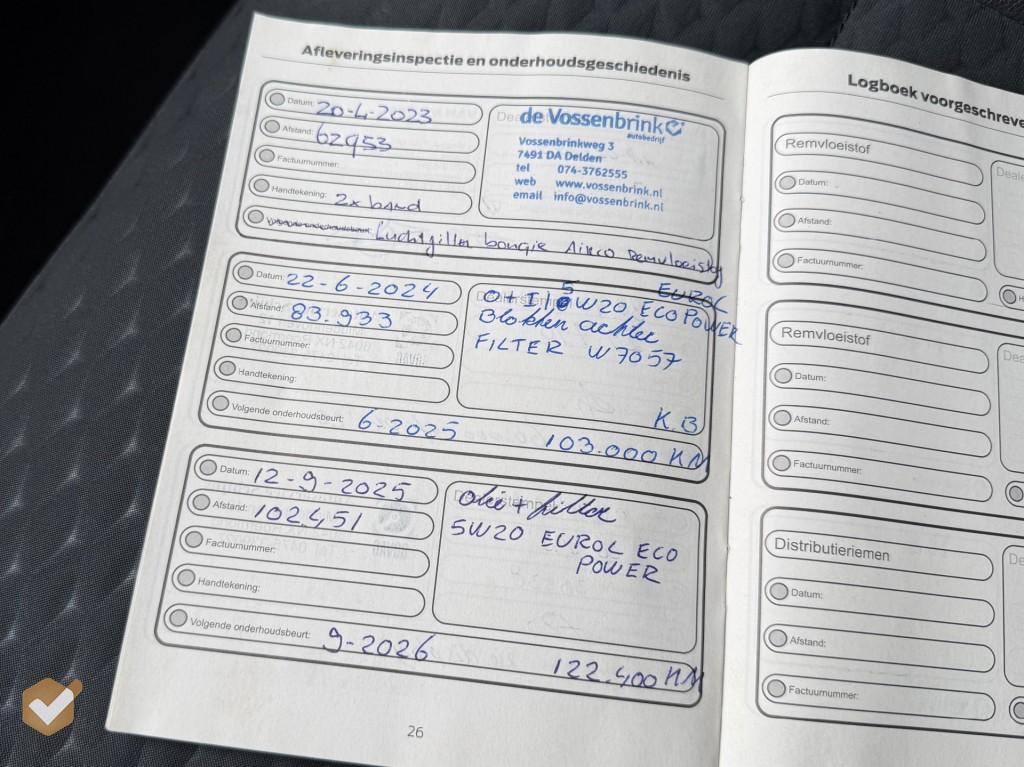 Afleveringsinspectie en onderhoudsgeschiedenis
Datum: 20-4-2023
Afstand: 62953
Factuurnummer:
Handtekening: 2x band
Luchtfilter bougie Airco Remvloeistof
de Vossenbrink
autobedrijf
Vossenbrinkweg 3
7491 DA Delden
tel 074-3762555
web www.vossenbrink.nl
email info@vossenbrink.nl
Datum: 22-6-2024
Afstand: 83.933
Factuurnummer:
Handtekening:
Volgende onderhoudsbeurt: 6-2025 103.000 KM
EUROL
O+F 5W20 ECOPOWER
Blokken achter
FILTER W7057
K.B
Datum: 12-9-2025
Afstand: 102.451
Factuurnummer:
Handtekening:
Volgende onderhoudsbeurt: 9-2026 122.400 KM
olie + filter
5W20 EUROL ECO
POWER
26
Logboek voorgeschreve
Remvloeistof
Datum:
Afstand:
Factuurnummer:
Remvloeistof
Datum:
Afstand:
Factuurnummer:
Distributieriemen
Datum:
Afstand:
Factuurnummer: